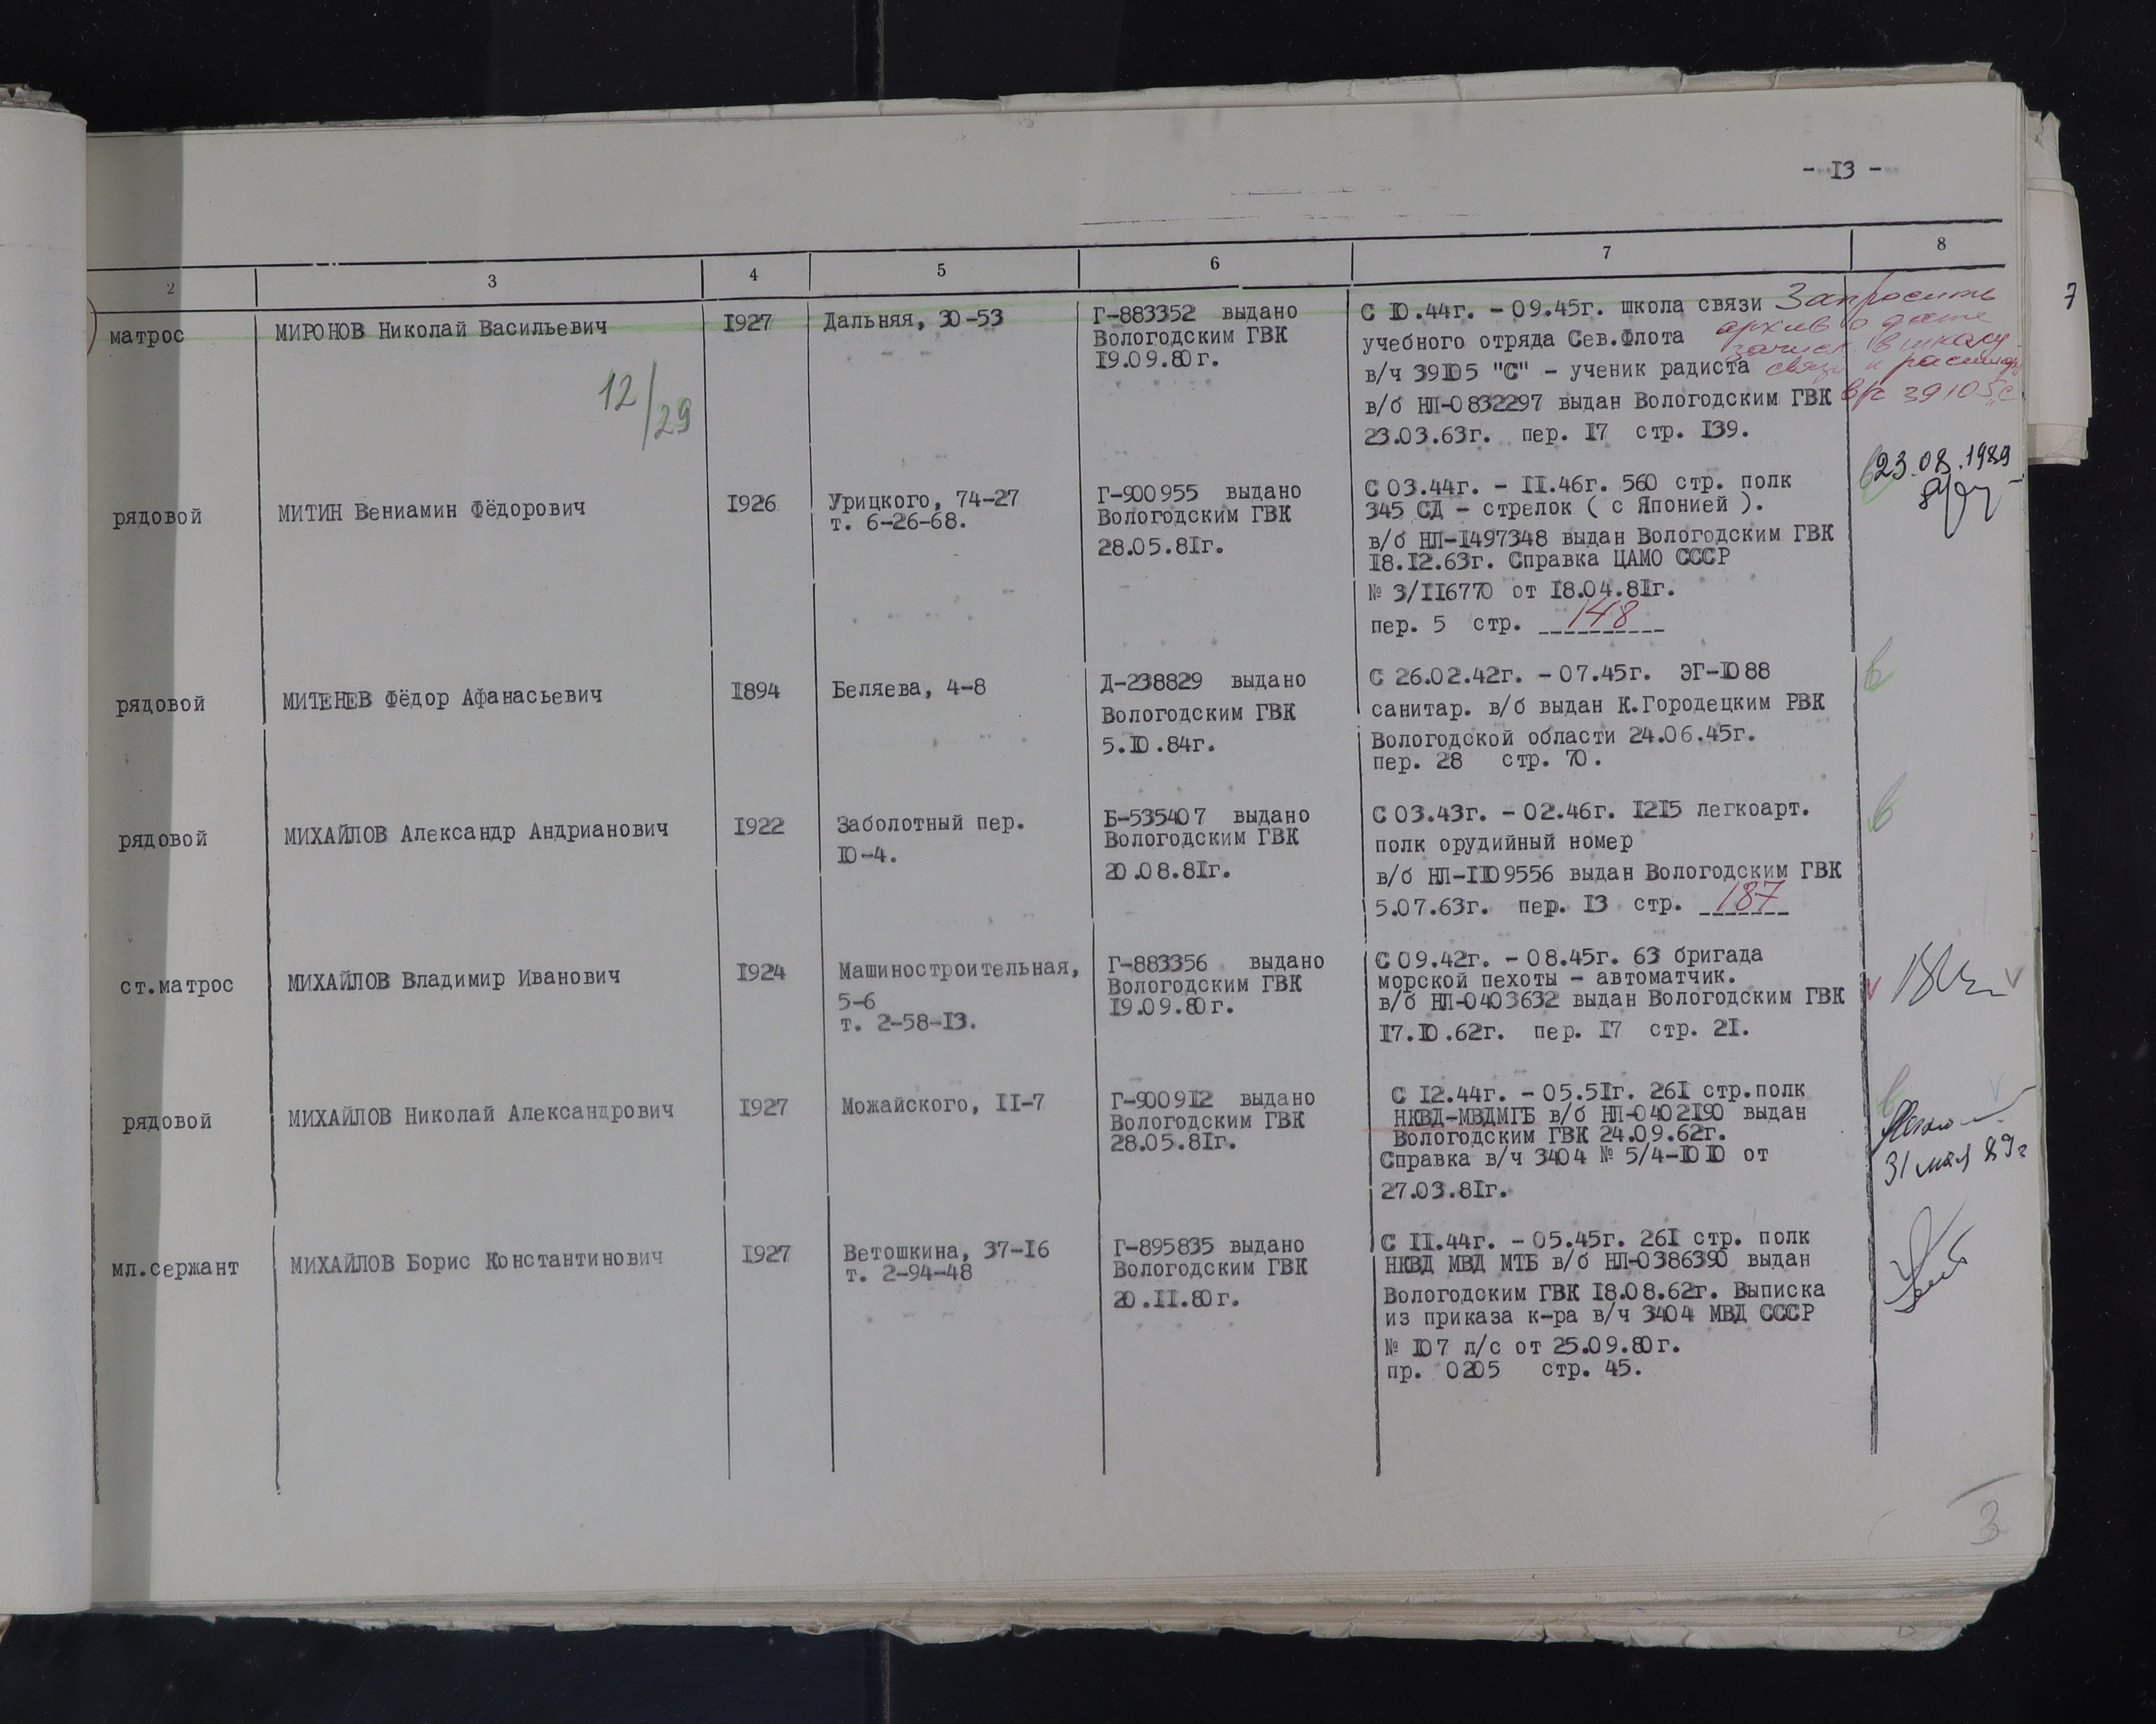 - I3 -
2 3 4 5 6 7 8
7
матрос
МИРОНОВ Николай Васильевич
12/29
I927
Дальняя, 30-53
Г-883352 выдано
Вологодским ГВК
I9.09.80г.
С I0.44г. - 09.45г. школа связи
учебного отряда Сев.Флота
в/ч 39I05 "С" - ученик радиста
в/б НП-0832297 выдан Вологодским ГВК
23.03.63г. пер. I7 стр. I39.
Запросить
архив о дате
зачисл. в школу
связи и расшифр.
в/ч 39105 "С"
рядовой
МИТИН Вениамин Фёдорович
I926
Урицкого, 74-27
т. 6-26-68.
Г-900955 выдано
Вологодским ГВК
28.05.8Iг.
С 03.44г. - II.46г. 560 стр. полк
345 СД - стрелок ( с Японией ).
в/б НП-I497348 выдан Вологодским ГВК
I8.I2.63г. Справка ЦАМО СССР
№ 3/II6770 от I8.04.8Iг.
пер. 5 стр. 148
23.08.1989
рядовой
МИТЕНЕВ Фёдор Афанасьевич
I894
Беляева, 4-8
Д-238829 выдано
Вологодским ГВК
5.I0.84г.
С 26.02.42г. - 07.45г. ЭГ-I088
санитар. в/б выдан К.Городецким РВК
Вологодской области 24.06.45г.
пер. 28 стр. 70.
рядовой
МИХАЙЛОВ Александр Андрианович
I922
Заболотный пер.
I0-4.
Б-535407 выдано
Вологодским ГВК
20.08.8Iг.
С 03.43г. - 02.46г. I2I5 легкоарт.
полк орудийный номер
в/б НП-II09556 выдан Вологодским ГВК
5.07.63г. пер. I3 стр. 187
ст.матрос
МИХАЙЛОВ Владимир Иванович
I924
Машиностроительная,
5-6
т. 2-58-I3.
Г-883356 выдано
Вологодским ГВК
I9.09.80г.
С 09.42г. - 08.45г. 63 бригада
морской пехоты - автоматчик.
в/б НП-0403632 выдан Вологодским ГВК
I7.I0.62г. пер. I7 стр. 2I.
рядовой
МИХАЙЛОВ Николай Александрович
I927
Можайского, II-7
Г-9009I2 выдано
Вологодским ГВК
28.05.8Iг.
С I2.44г. - 05.5Iг. 26I стр.полк
НКВД-МВДМГБ в/б НП-0402I90 выдан
Вологодским ГВК 24.09.62г.
Справка в/ч 3404 № 5/4-I0I0 от
27.03.8Iг.
31 мая 89г
мл.сержант
МИХАЙЛОВ Борис Константинович
I927
Ветошкина, 37-I6
т. 2-94-48
Г-895835 выдано
Вологодским ГВК
20.II.80г.
С II.44г. - 05.45г. 26I стр. полк
НКВД МВД МТБ в/б НП-0386390 выдан
Вологодским ГВК I8.08.62г. Выписка
из приказа к-ра в/ч 3404 МВД СССР
№ I07 л/с от 25.09.80г.
пр. 0205 стр. 45.
3